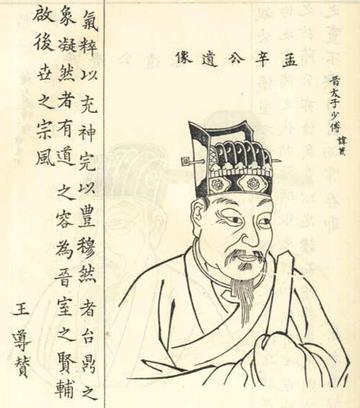 晋太子少傅 諱
孟辛公遺像
氣粹以充神完以豊穆然者台鼎之
象凝然者有道之容為晉室之賢輔
啟後卋之宗風
王導贊